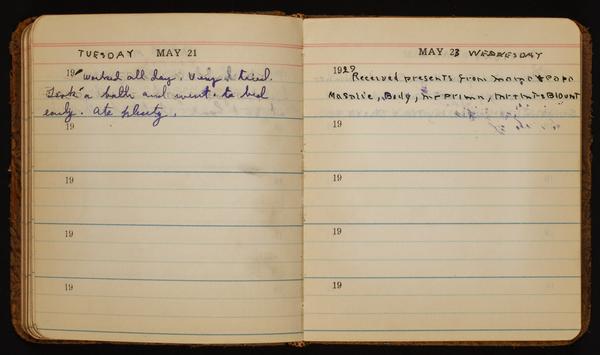 TUESDAY MAY 21
19 Worked all day. Very tired.
Took a bath and went to bed
early. Ate plenty.
19
19
19
19
MAY 23 WEDNESDAY
1929 Received presents from mama & papa
Rosalie, Body, Mr Primm, Blount
19
19
19
19